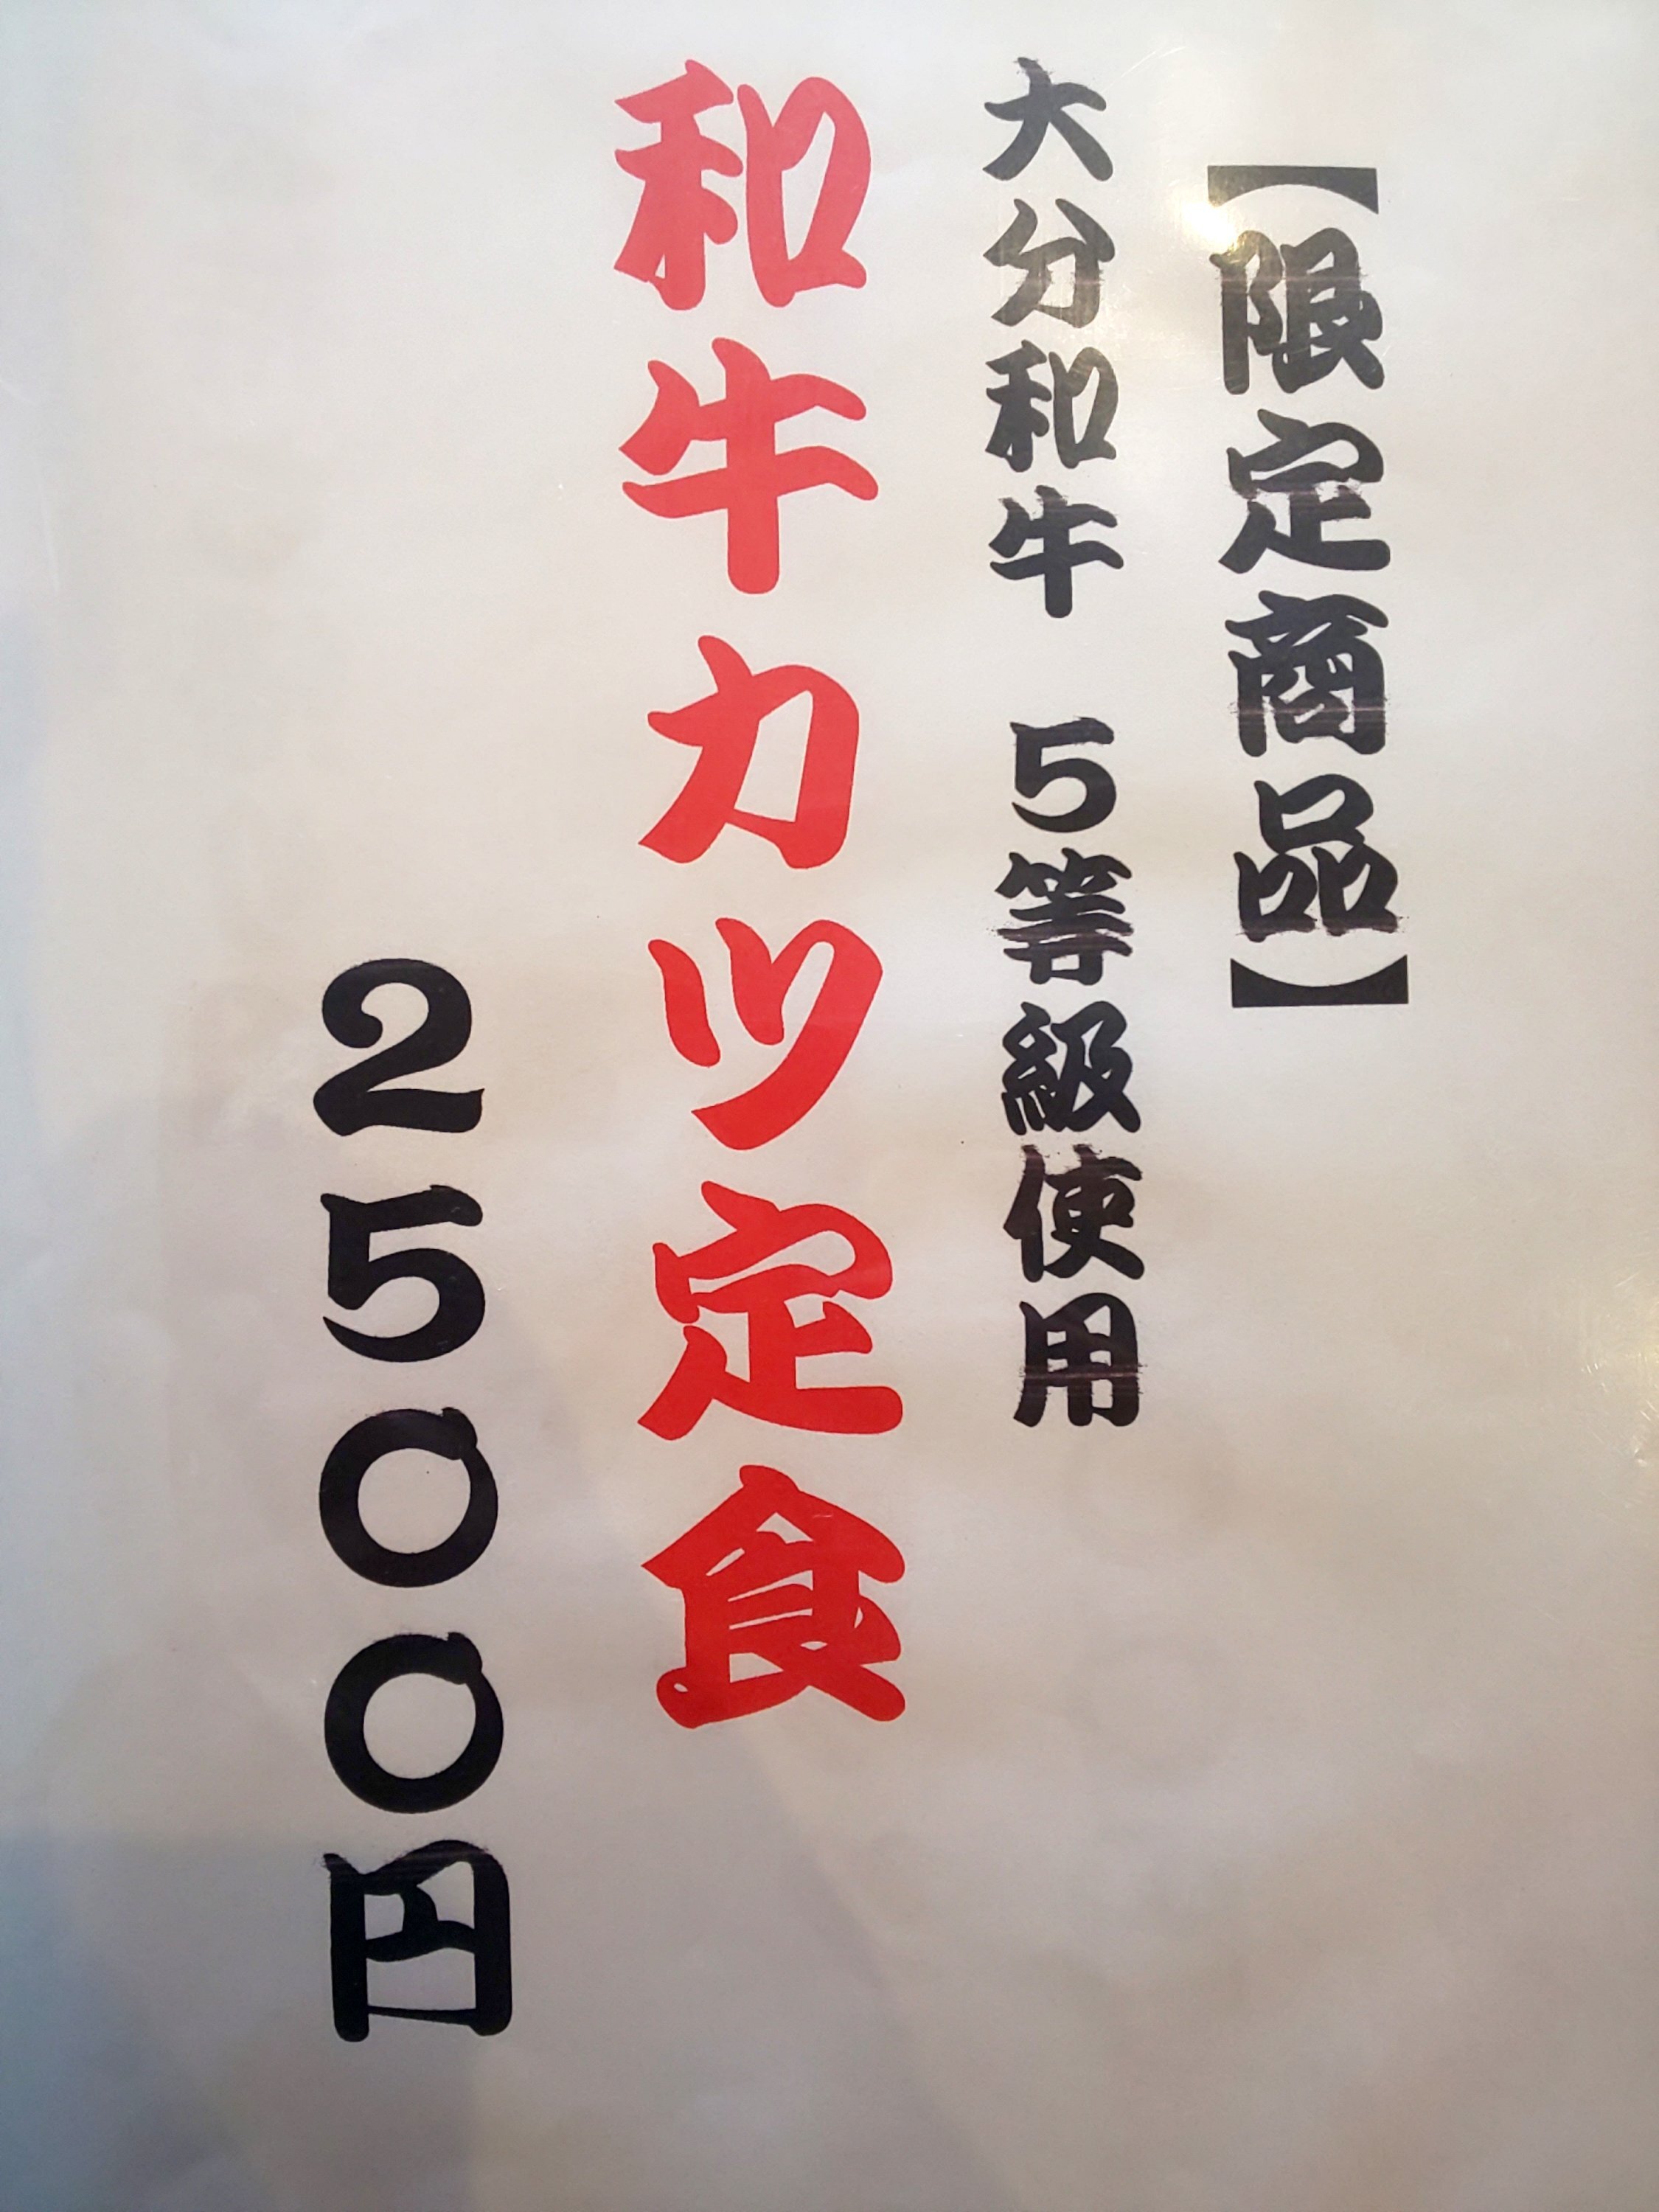 【限定商品】
大分和牛　５等級使用
和牛カツ定食
２５００円